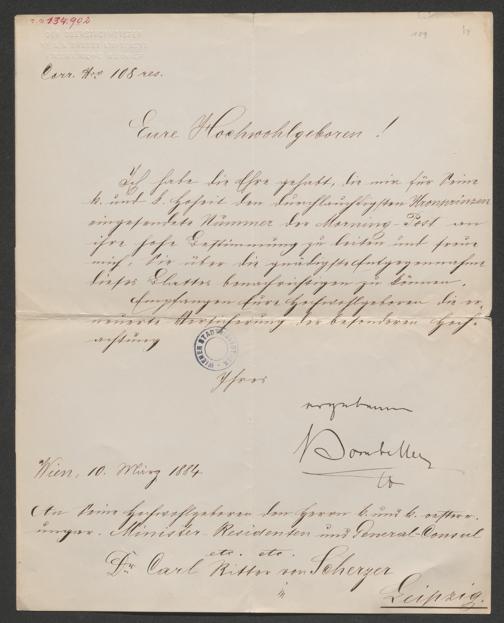 I.N. 134.902
DER OBERSTHOFMEISTER
189
Corr. Nro 108 res.
Eure Hochwohlgeboren!
Ich habe die Ehre gehabt, die mir für Seine
k. und k. Hoheit den durchlauchtigsten Kronprinzen
eingesendete Nummer der Morning-Post an
ihre hohe Bestimmung zu leiten und freue
mich, Sie über die gnädigste Entgegennahme
dieses Blattes benachrichtigen zu können.
Empfangen Eure Hochwohlgeboren die er-
neuerte Versicherung der besonderen Hoch-
achtung
WIENER STADTBIBLIOTHEK
Ihres
ergebenen
Bombelles
Wien, 10. März 1884.
An Seine Hochwohlgeboren den Herrn k. und k. oesterr.
ungar. Minister-Residenten und General-Consul
etc. etc.
Dr. Carl Ritter von Scherzer
Leipzig.